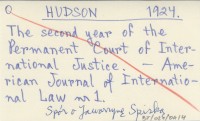 HUDSON 1924.
The second year of the
Permanent Court of Inter-
national Justice. - Ame-
rican Journal of Internatio-
nal Law nr 1.